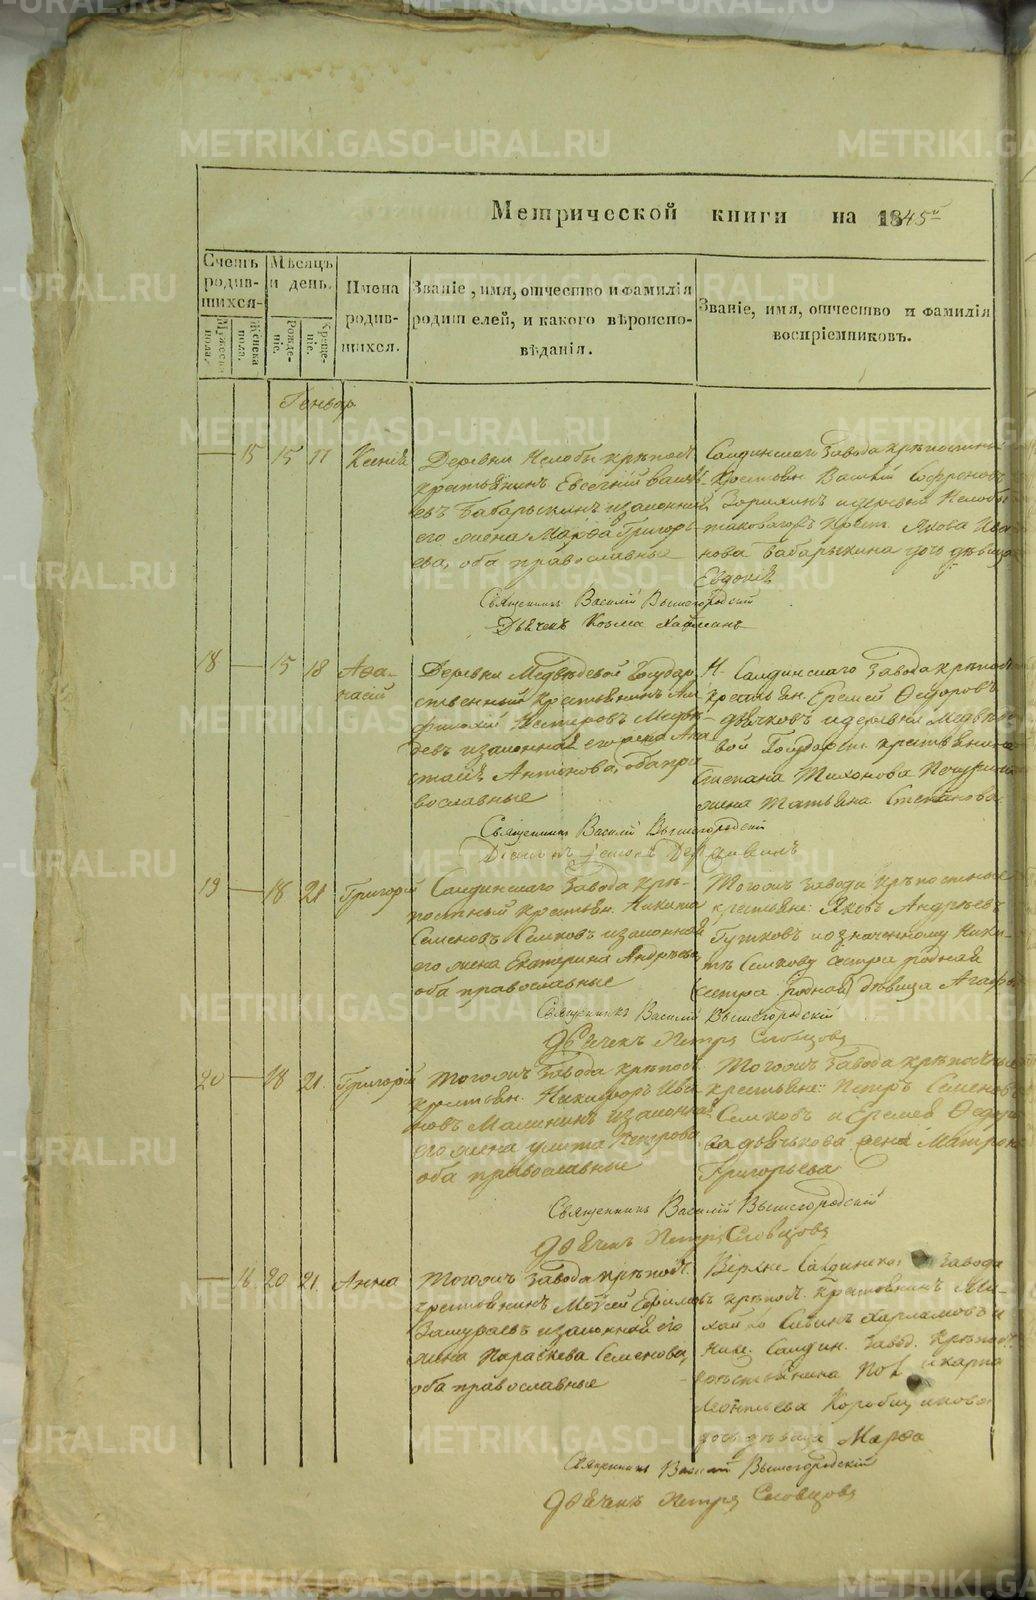 METRIKI.GASO-URAL.RU
Метрической книги на 1845й
Счетъ родив-шихся.
Мужеска пола.
Женска пола.
Мѣсяцъ и день.
Рожде-ніе.
Креще-ніе.
Имена родив-шихся.
Званіе, имя, отчество и фамилія
родителей, и какого вѣроиспо-
вѣданія.
Званіе, имя, отчество и фамилія
воспріемниковъ.
Генвар
15 15 17 Ксенія
Деревни Нелобы крѣпост.
крестьянинъ Евсегній
евъ Бабарыкинъ и законная
его жена Марѳа Григорь-
ева, оба православные
Салдинскаго Завода крѣпостный
Василій Софроновъ
Зорихинъ и деревни Нелобы
Крест. Якова Ива-
нова Бабарыкина дочь дѣвица
Евдокія
Священникъ Василій Вышегородскій
Дьячекъ Козма
18 15 18 Аѳа-
насій
Деревни Медвѣдевой Государ-
ственный Крестьянинъ
Нестеровъ Медвѣ-
девъ и законная его жена Ана-
стасія Антонова, оба пра-
вославные
Н. Салдинскаго Завода крѣпост.
крестьян. Еремей Ѳедоровъ
Дьячковъ и деревни Медвѣде-
вой Государ. крестьянина
Степана Тихонова
жена Татьяна Степанова
Священникъ Василій Вышегородскій
19 18 21 Григорій
Салдинскаго Завода крѣ-
постный крестьян. Никита
Семеновъ Семковъ и законная
его жена Екатерина Андрѣева
оба православные
Тогожъ завода крѣпостные
крестьяне: Яковъ Андрѣевъ
Гутковъ и означенному Ники-
тѣ Семкову сестра родная
(сестра родная) дѣвица
Священникъ Василій Вышегородскій
Дьячекъ Петръ Словцовъ
20 18 21 Григорій
Тогожъ Завода крѣпост.
крестьян. Никифоръ Ива-
новъ Малининъ и законная
его жена Улита Петрова
оба православные
Тогожъ Завода крѣпостные
крестьяне: Петръ Семеновъ
Семковъ и Еремея Ѳедоро-
ва Дьячькова жена Матрона
Григорьева
Священникъ Василій Вышегородскій
Дьячекъ Петръ Словцовъ
16 20 21 Анна
Тогожъ Завода крѣпост.
крестьянинъ Моѵсей Ефимовъ
Зашураевъ и законная его
жена Параскева Семенова,
оба православные
Верхне-Салдинскаго Завода
крѣпост. крестьянинъ Ми-
хайло Сибинъ Харламовъ и
Ниж. Салдин. Завод. крѣпост.
крестьянина
Леонтьева
дочь дѣвица Марѳа
Священникъ Василій Вышегородскій
Дьячекъ Петръ Словцовъ